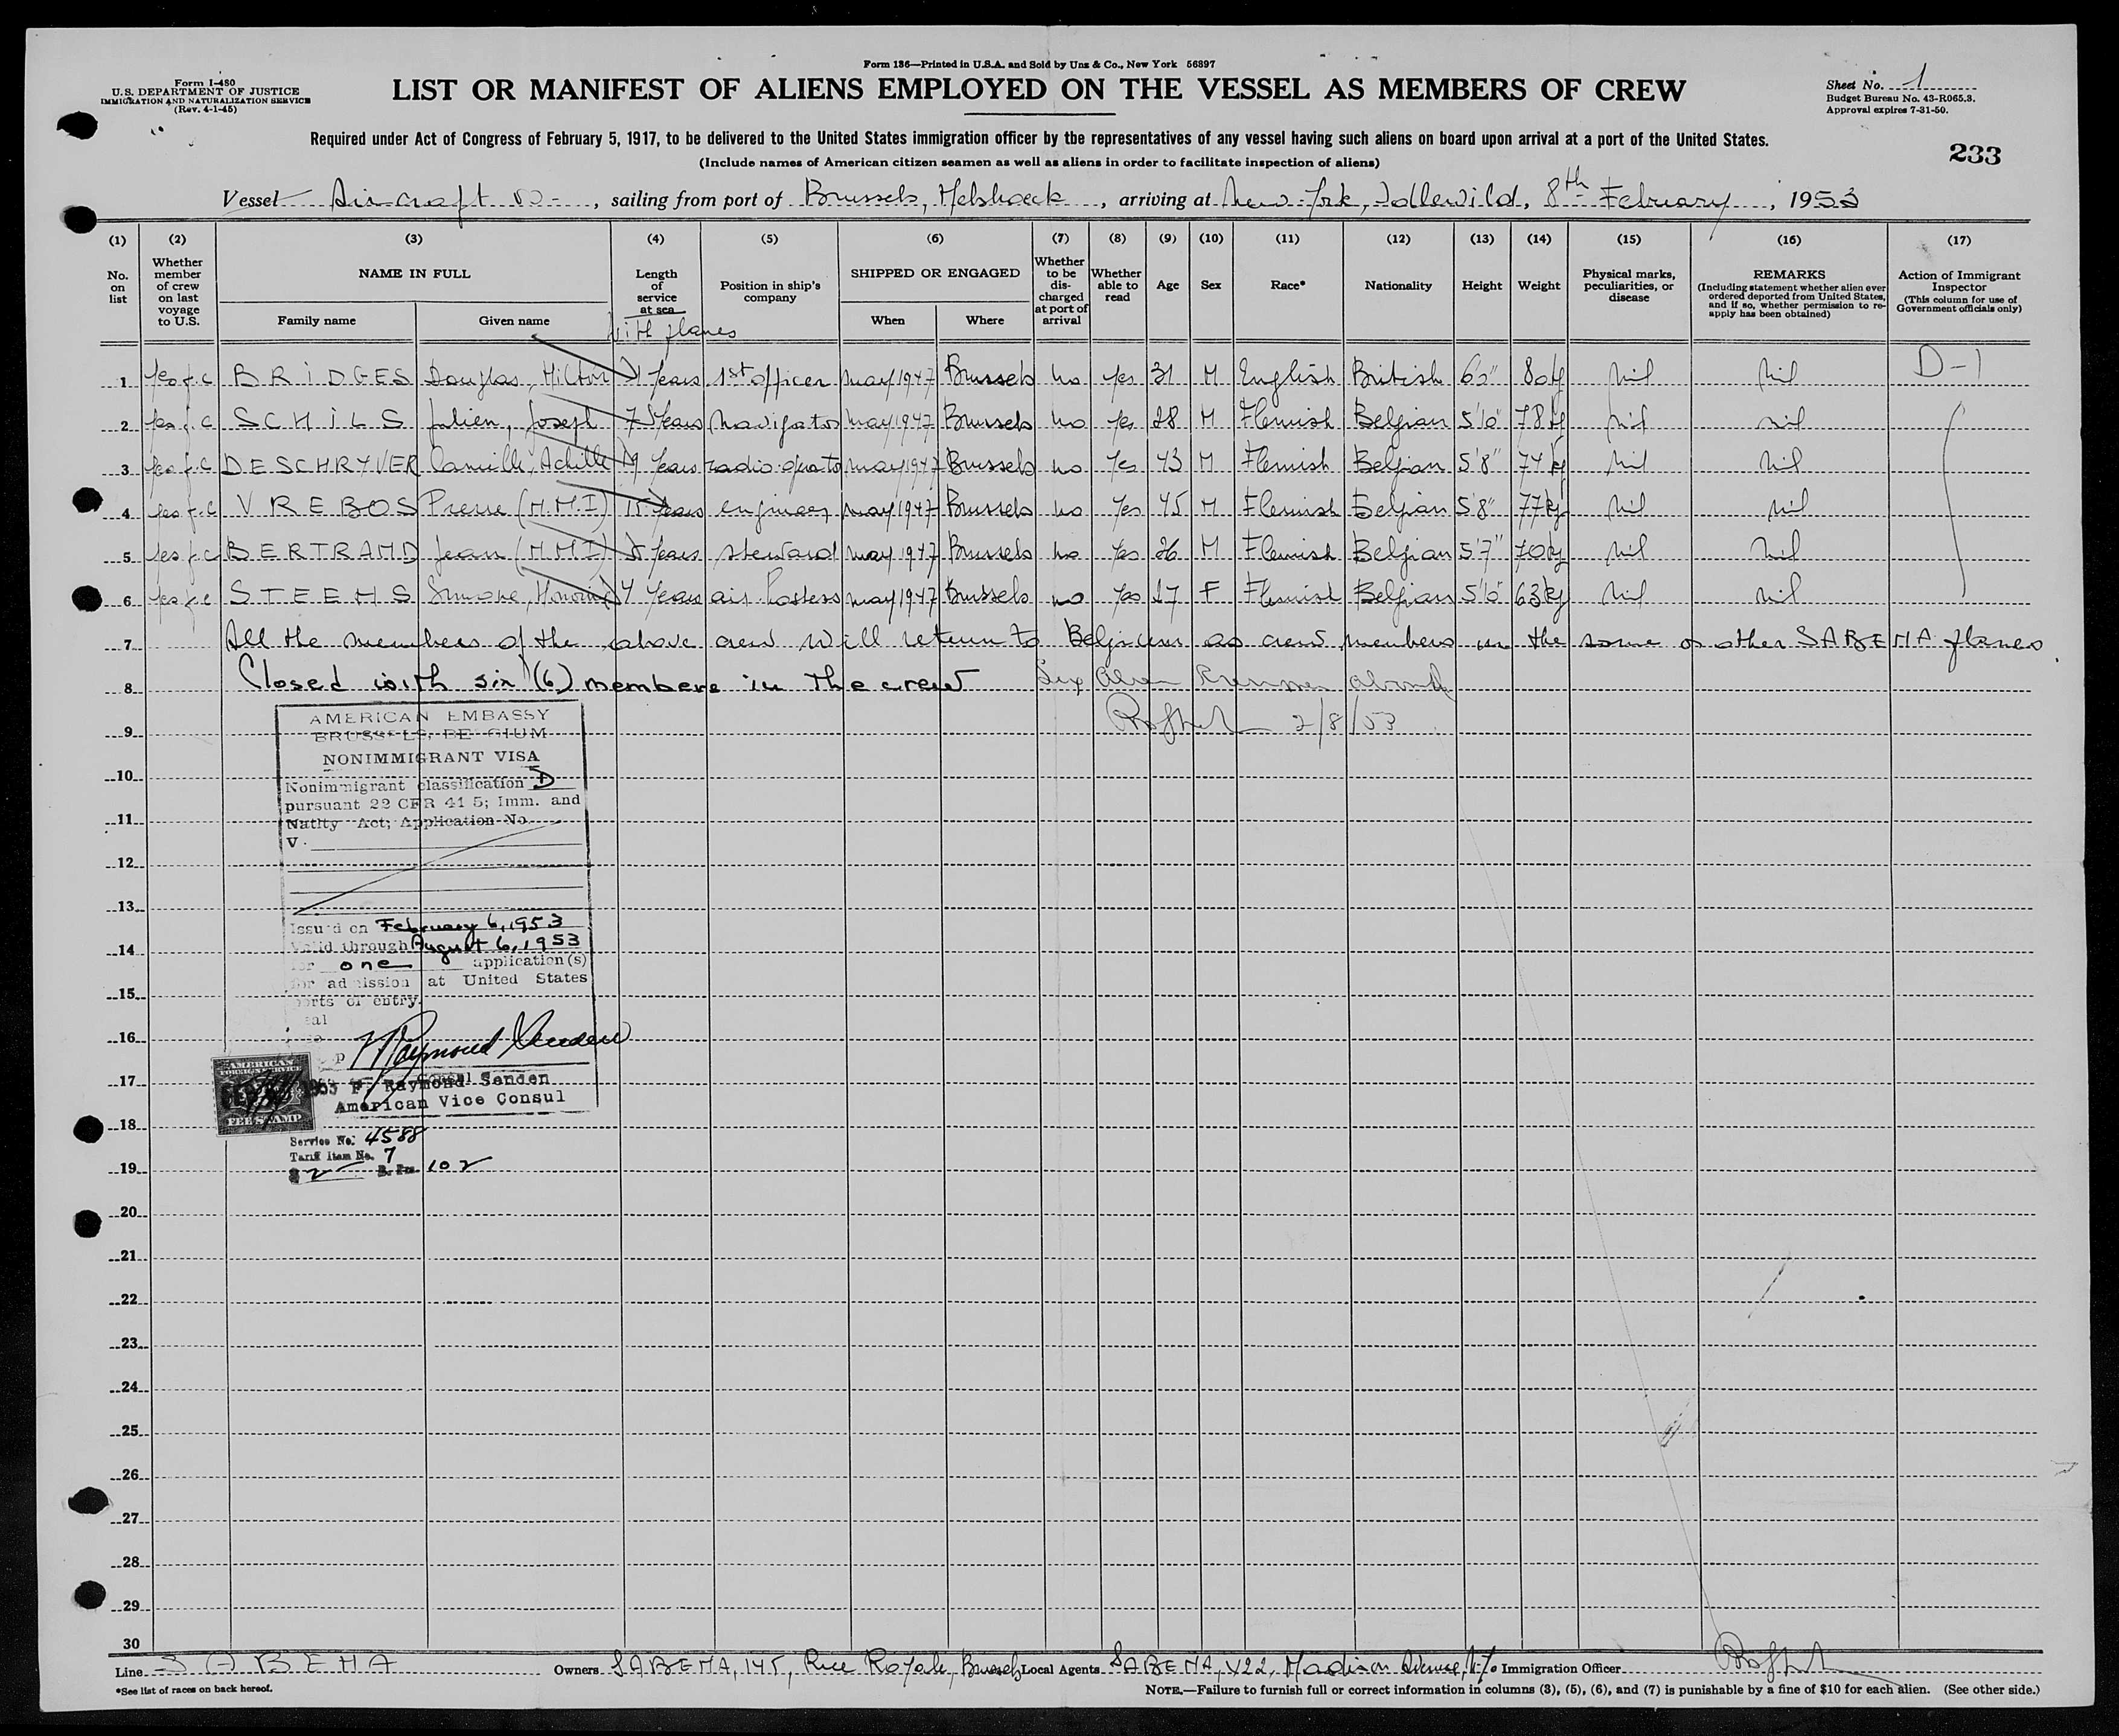 Form I-480
U.S. DEPARTMENT OF JUSTICE
IMMIGRATION AND NATURALIZATION SERVICE
(Rev. 4-1-45)
Form 136—Printed in U.S.A. and Sold by Unz & Co., New York 56897
LIST OR MANIFEST OF ALIENS EMPLOYED ON THE VESSEL AS MEMBERS OF CREW
Sheet No. 1
Budget Bureau No. 43-R065.3.
Approval expires 7-31-50.
Required under Act of Congress of February 5, 1917, to be delivered to the United States immigration officer by the representatives of any vessel having such aliens on board upon arrival at a port of the United States.
(Include names of American citizen seamen as well as aliens in order to facilitate inspection of aliens)
233
Vessel Aircraft OO-, sailing from port of Brussels, Melsbroeck, arriving at New-York, Idlewild, 8th February, 1953
(1) (2) (3) (4) (5) (6) (7) (8) (9) (10) (11) (12) (13) (14) (15) (16) (17)
No. on list
Whether member of crew on last voyage to U.S.
NAME IN FULL
Family name
Given name
Length of service at sea
with planes
Position in ship's company
SHIPPED OR ENGAGED
When
Where
Whether to be discharged at port of arrival
Whether able to read
Age
Sex
Race*
Nationality
Height
Weight
Physical marks, peculiarities, or disease
REMARKS
(Including statement whether alien ever ordered deported from United States, and if so, whether permission to re-apply has been obtained)
Action of Immigrant Inspector
(This column for use of Government officials only)
1 yes f.c BRIDGES Douglas, Milton Years 1st officer may 1947 Brussels no yes 31 M English British 6'0" 80kg nil nil D-1
2 yes f.c SCHILS Julien, Joseph 7 Years navigator may 1947 Brussels no yes 28 M Flemish Belgian 5'10" 78kg nil nil
3 yes f.c DESCHRYVER Camille, Achille 19 Years radio operator may 1947 Brussels no yes 43 M Flemish Belgian 5'8" 74kg nil nil
4 yes f.c VREBOS Pierre (N.M.I) 15 Years engineer may 1947 Brussels no yes 45 M Flemish Belgian 5'8" 77kg nil nil
5 yes f.c BERTRAND Jean (N.M.I) Years steward may 1947 Brussels no yes 26 M Flemish Belgian 5'7" 70kg nil nil
6 yes f.c STEENS Simone, Honorine 4 Years air hostess may 1947 Brussels no yes 27 F Flemish Belgian 5'10" 63kg nil nil
7 All the members of the above crew will return to Belgium as crew members in the same or other SABENA planes.
8 Closed with six (6) members in the crew Six Alien Crewmen aboard
9 2/8/53
AMERICAN EMBASSY
BRUSSELS, BELGIUM
NONIMMIGRANT VISA
10
Nonimmigrant classification D
pursuant 22 CFR 41 5; Imm. and
11
Natlty Act; Application No.
V.
12
13
Issued on February 6, 1953
14
Valid through August 6, 1953
for one application(s)
for admission at United States
15
ports of entry.
16
Raymond Senden
17
AMERICAN
FOREIGN SERVICE
FEE STAMP
1953 F. Raymond Senden
Consul
American Vice Consul
18
Service No. 4588
Tariff Item No. 7
19
$2 B. Frs. 102
20
21
22
23
24
25
26
27
28
29
30
Line SABENA Owners SABENA, 145, Rue Royale, Brussels Local Agents SABENA, 422, Madison Avenue, N.Y. Immigration Officer
*See list of races on back hereof.
NOTE.—Failure to furnish full or correct information in columns (3), (5), (6), and (7) is punishable by a fine of $10 for each alien. (See other side.)